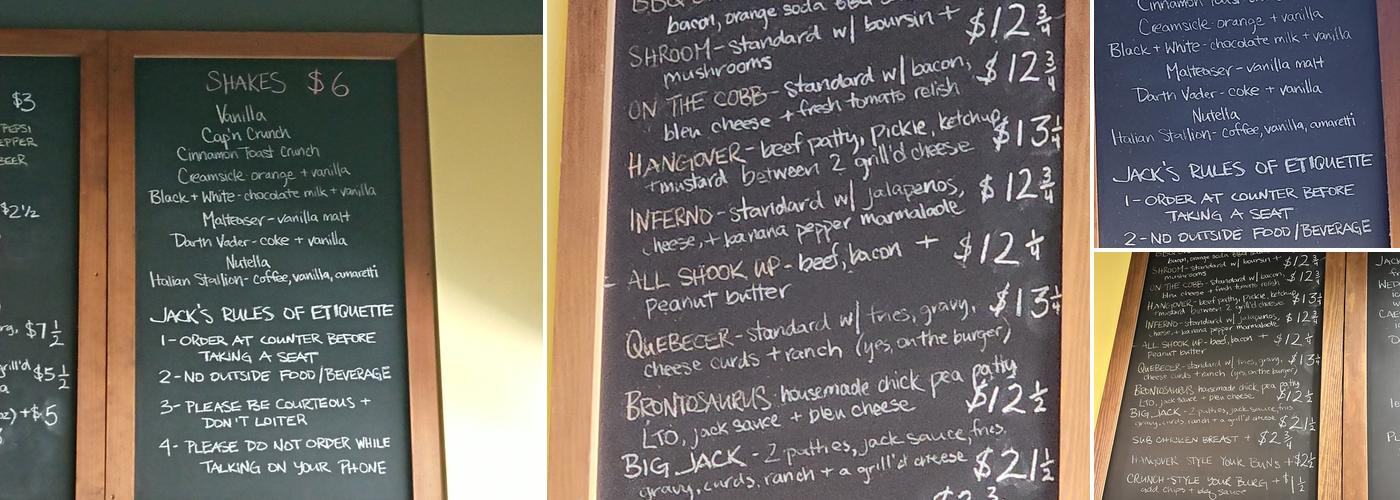 $3
PEPSI
EPPER
BEER
$2½
$7½
grill'd $5½
oz) + $.5
SHAKES $6
Vanilla
Cap'n Crunch
Cinnamon Toast Crunch
Creamsicle - orange + vanilla
Black + White - chocolate milk + vanilla
Malteaser - vanilla malt
Darth Vader - coke + vanilla
Nutella
Italian Stallion - coffee, vanilla, amaretti
JACK'S RULES OF ETIQUETTE
1 - ORDER AT COUNTER BEFORE
TAKING A SEAT
2 - NO OUTSIDE FOOD / BEVERAGE
3 - PLEASE BE COURTEOUS +
DON'T LOITER
4 - PLEASE DO NOT ORDER WHILE
TALKING ON YOUR PHONE
BBQ
bacon, orange soda BBQ
SHROOM - standard w/ boursin + $12¾
mushrooms
ON THE COBB - standard w/ bacon, $12¾
bleu cheese + fresh tomato relish
HANGOVER - beef patty, pickle, ketchup, $13¼
+ mustard between 2 grill'd cheese
INFERNO - standard w/ jalapenos, $12¾
cheese, + banana pepper marmalade
ALL SHOOK UP - beef, bacon + $12¼
Peanut butter
QUEBECER - standard w/ fries, gravy, $13¼
cheese curds + ranch (yes, on the burger)
BRONTOSAURUS, housemade chick pea patty
LTO, jack sauce + bleu cheese $12½
BIG JACK - 2 patties, jack sauce, fries,
gravy, curds, ranch + a grill'd cheese $21½
Cinnamon Toast
Creamsicle - orange + vanilla
Black + White - chocolate milk + vanilla
Malteaser - vanilla malt
Darth Vader - coke + vanilla
Nutella
Italian Stallion - coffee, vanilla, amaretti
JACK'S RULES OF ETIQUETTE
1 - ORDER AT COUNTER BEFORE
TAKING A SEAT
2 - NO OUTSIDE FOOD / BEVERAGE
bacon, orange soda BBQ
SHROOM - standard w/ boursin + $12¾
mushrooms
ON THE COBB - standard w/ bacon, $12¾
bleu cheese + fresh tomato relish
HANGOVER - beef patty, pickle, ketchup $13¼
+ mustard between 2 grill'd cheese
INFERNO - standard w/ jalapenos, $12¾
cheese, + banana pepper marmalade
ALL SHOOK UP - beef, bacon + $12¼
Peanut butter
QUEBECER - standard w/ fries, gravy, $13¼
cheese curds + ranch (yes, on the burger)
BRONTOSAURUS, housemade chick pea patty
LTO, jack sauce + bleu cheese $12½
BIG JACK - 2 patties, jack sauce, fries
gravy, curds, ranch + a grill'd cheese $21½
SUB CHICKEN BREAST + $2¾
HANGOVER STYLE YOUR BUNS + $2½
CRUNCH-STYLE YOUR BURG + $1½
add chips + bbq sauce